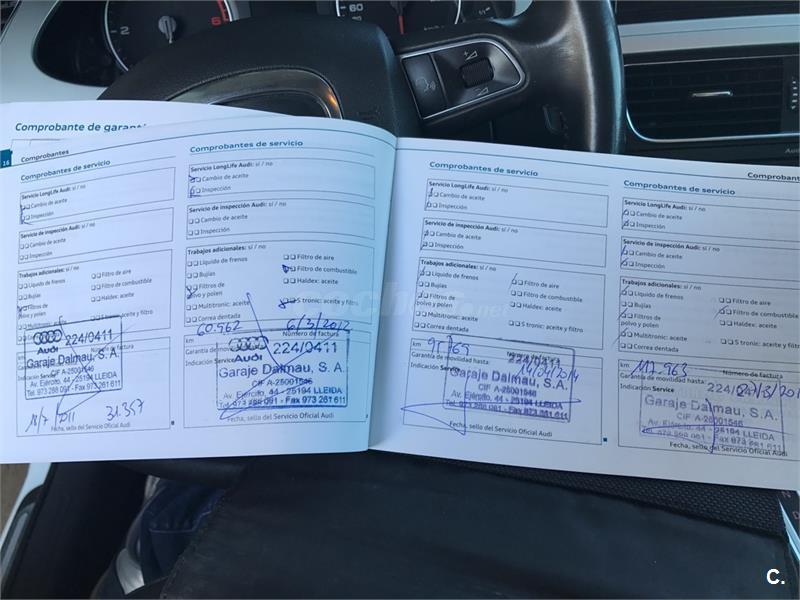 Comprobante de garantí
16
Comprobantes
Comprobantes de servicio
Servicio LongLife Audi: sí / no
Cambio de aceite
Inspección
Servicio de inspección Audi: sí / no
Cambio de aceite
Inspección
Trabajos adicionales: sí / no
Líquido de frenos
Bujías
Filtros de
polvo y polen
Multitronic: aceite
Correa dentada
Filtro de aire
Filtro de combustible
Haldex: aceite
S tronic: aceite y filtro
Audi
224/0411
Garaje Dalmau, S.A.
CIF A-25001546
Av. Ejército, 44 - 25194 LLEIDA
Tel. 973 268 061 - Fax 973 261 611
31.357
Fecha, sello del Servicio Oficial Audi
Comprobantes de servicio
Servicio LongLife Audi: sí / no
Cambio de aceite
Inspección
Servicio de inspección Audi: sí / no
Cambio de aceite
Inspección
Trabajos adicionales: sí / no
Líquido de frenos
Bujías
Filtros de
polvo y polen
Multitronic: aceite
Correa dentada
Filtro de aire
Filtro de combustible
Haldex: aceite
S tronic: aceite y filtro
60.962
6/3/2012
km
Número de factura
Garantía de movilidad
Indicación Service
Audi
224/0411
Garaje Dalmau, S.A.
CIF A-25001546
Av. Ejército, 44 - 25194 LLEIDA
Tel. 973 268 061 - Fax 973 261 611
Fecha, sello del Servicio Oficial Audi
Comprobantes de servicio
Servicio LongLife Audi: sí / no
Cambio de aceite
Inspección
Servicio de inspección Audi: sí / no
Cambio de aceite
Inspección
Trabajos adicionales: sí / no
Líquido de frenos
Bujías
Filtros de
polvo y polen
Multitronic: aceite
Correa dentada
Filtro de aire
Filtro de combustible
Haldex: aceite
S tronic: aceite y filtro
km
Garantía de movilidad hasta:
Indicación Service
224/0411
Garaje Dalmau, S.A.
CIF A-25001546
Av. Ejército, 44 - 25194 LLEIDA
Fecha, sello del Servicio Oficial Audi
Comprobant
Comprobantes de servicio
Servicio LongLife Audi: sí / no
Cambio de aceite
Inspección
Servicio de inspección Audi: sí / no
Cambio de aceite
Inspección
Trabajos adicionales: sí / no
Líquido de frenos
Bujías
Filtros de
polvo y polen
Multitronic: aceite
Correa dentada
Filtro de aire
Filtro de combustible
Haldex: aceite
S tronic: aceite y filt
km
117.963
Número de factura
Garantía de movilidad hasta:
Indicación Service
Garaje Dalmau, S.A.
CIF A-25001546
Av. Ejército, 44 - 25194 LLEIDA
Fecha, sello del Servicio Oficial Audi
C.